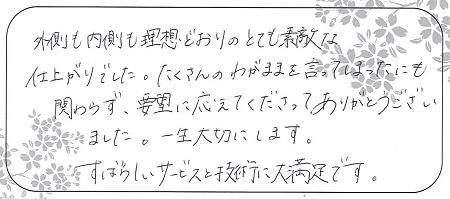 外側も内側も理想どおりのとても素敵な
仕上がりでした。たくさんのわがままを言ってしまったにも
関わらず、要望に応えてくださってありがとうござい
ました。一生大切にします。
すばらしいサービスと技術に大満足です。